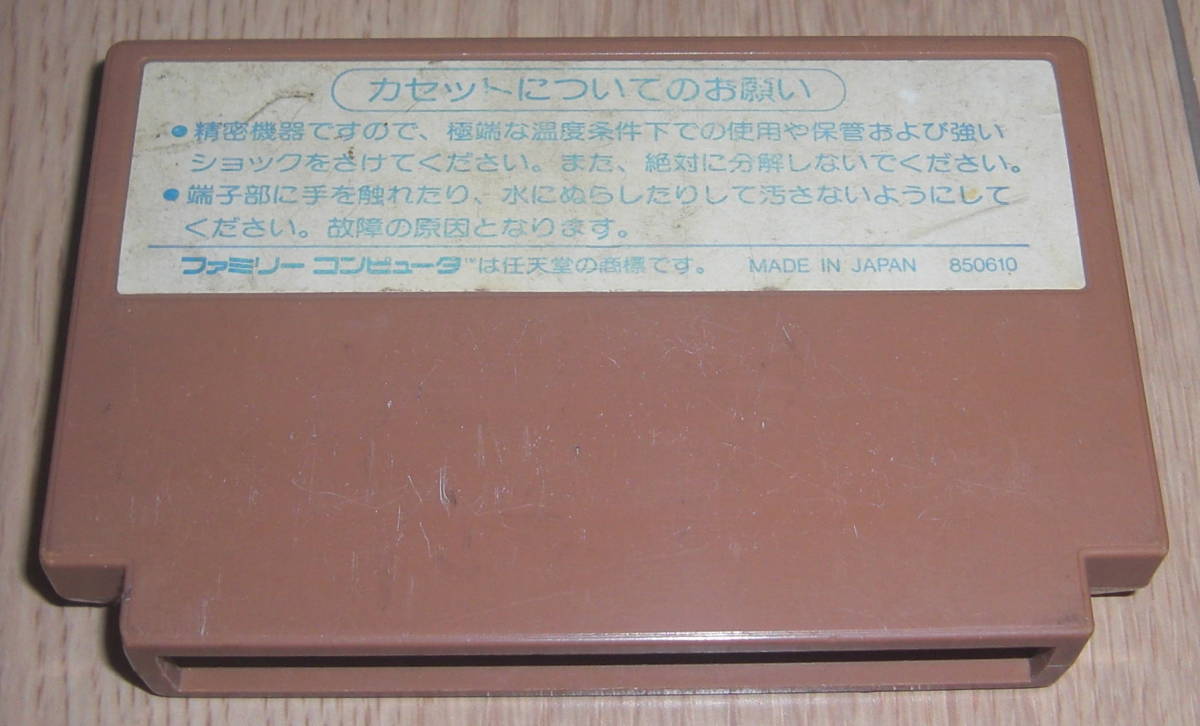 カセットについてのお願い
●精密機器ですので、極端な温度条件下での使用や保管および強い
ショックをさけてください。また、絶対に分解しないでください。
●端子部に手を触れたり、水にぬらしたりして汚さないようにして
ください。故障の原因となります。
ファミリーコンピュータ™は任天堂の商標です。 MADE IN JAPAN 850610